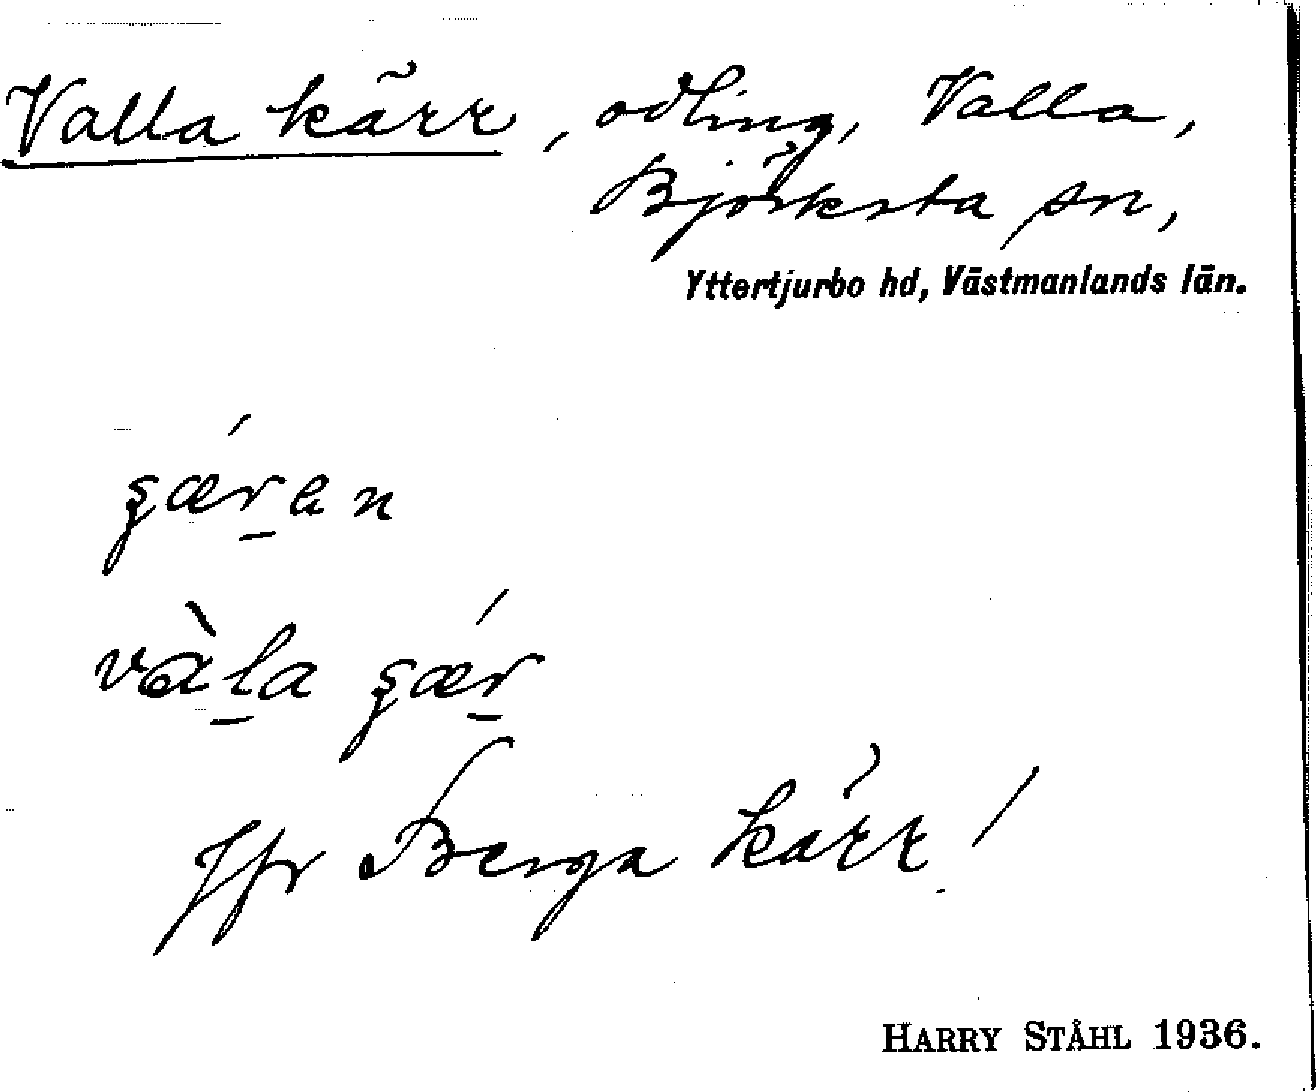 Valla kärr, odling, Valla,
Björksta sn,
Yttertjurbo hd, Västmanlands län.
Jfr Berga kärr!
HARRY STÅHL 1936.